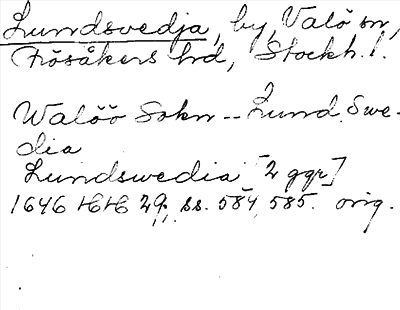 Lundsvedja, by, Valö sn,
Frösåkers hd, Stockh. l.
Walöö Sokn -- Lund Swe-
dia
Lundswedia [2 ggr]
1646 HH 29, ss. 584, 585. orig.